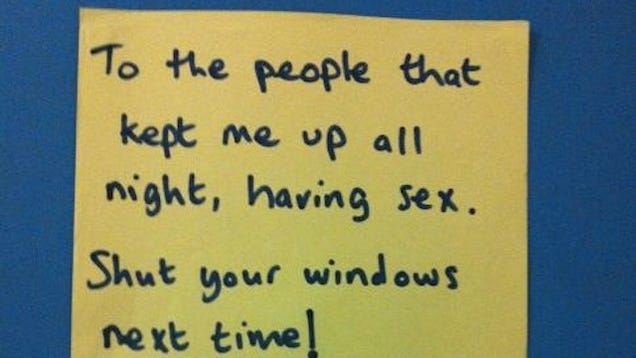 To the people that
kept me up all
night, having sex.
Shut your windows
next time!